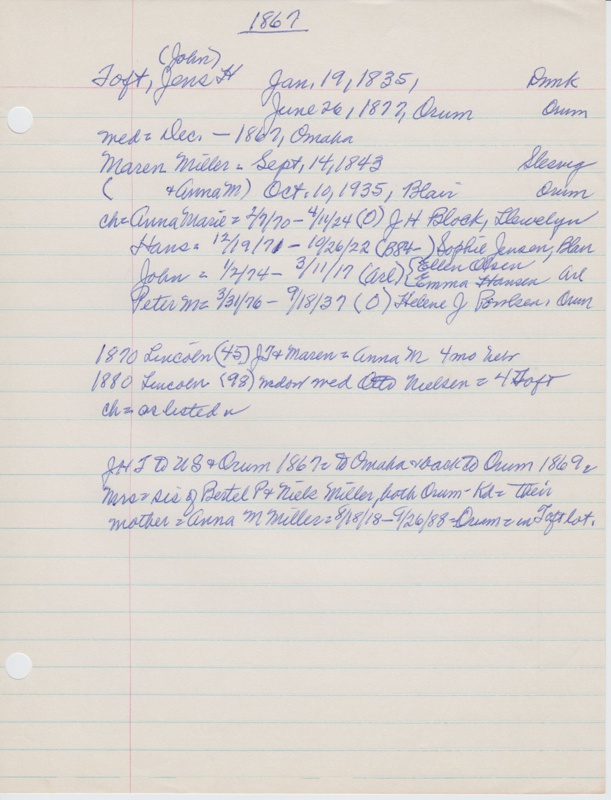 1867
(John)
Toft, Jens H Jan. 19, 1835, Dmk
June 26, 1877, Orum Orum
med = Dec. - 1867, Omaha
Maren Miller = Sept. 14, 1843 Slesvig
( + Anna M) Oct. 10, 1935, Blair Orum
ch = Anna Marie = 2/7/70 - 4/14/24 (O) J H Block, Llewelyn
Hans = 12/19/71 - 10/26/22 (B84-) Sophie Jensen, Blair
John = 1/2/74 - 3/11/17 (Arl) {Ellen Olsen
Emma Hansen Arl
Peter M = 3/31/76 - 9/18/37 (O) Helene J Poulsen, Orum
1870 Lincoln (45) JT + Maren = Anna M 4 mo Nebr
1880 Lincoln (98) widow med Otto Nielsen = 4 Toft
ch = as listed
JHT to US + Orum 1867 = to Omaha + back to Orum 1869
Mrs = sis of Bertel P + Niels Miller, both Orum - Kd = their
mother = Anna M Miller = 8/18/18 - 9/26/88 = Orum = in Toft lot.